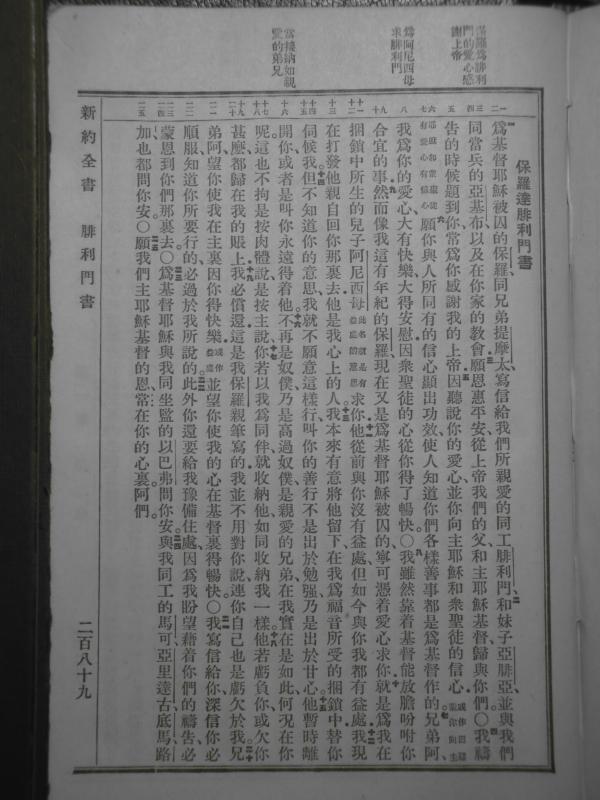 保羅爲腓利
門的愛心感
謝上帝
爲阿尼西母
求腓利門
當接納如親
愛的弟兄
保羅達腓利門書
爲基督耶穌被囚的保羅同兄弟提摩太寫信給我們所親愛的同工腓利門和妹子亞腓亞並與我們
同當兵的亞基布以及在你家的教會願恩惠平安從上帝我們的父和主耶穌基督歸與你們○我禱
告的時候題到你常爲你感謝我的上帝因聽說你的愛心並你向主耶穌和衆聖徒的信心
願你與人所同有的信心顯出功效使人知道你們各樣善事都是爲基督作的兄弟阿
我爲你的愛心大有快樂大得安慰因衆聖徒的心從你得了暢快○我雖然靠着基督能放膽吩咐你
合宜的事然而像我這有年紀的保羅現在又是爲基督耶穌被囚的寧可憑着愛心求你就是爲我在
捆鎖中所生的兒子阿尼西母此名就是有益處的意思求你他從前與你沒有益處但如今與你我都有益處我現
在打發他親自回你那裏去他是我心上的人我本來有意將他留下在我爲福音所受的捆鎖中替你
伺候我但不知道你的意思我就不願意這樣行叫你的善行不是出於勉强乃是出於甘心他暫時離
開你或者是叫你永遠得着他不再是奴僕乃是高過奴僕是親愛的兄弟在我實在是如此何况在你
呢這也不拘是按肉體說是按主說你若以我爲同伴就收納他如同收納我一樣他若虧負你或欠你
甚麽都歸在我的賬上我必償還這是我保羅親筆寫的我並不用對你說連你自己也是虧欠於我兄
弟阿望你使我在主裏因你得快樂或作益處並望你使我的心在基督裏得暢快○我寫信給你深信你必
順服知道你所要行的必過於我所說的此外你還要給我豫備住處因爲我盼望藉着你們的禱告必
蒙恩到你們那裏去○爲基督耶穌與我同坐監的以巴弗問你安與我同工的馬可亞里達古底馬路
加也都問你安○願我們主耶穌基督的恩常在你的心裏阿們
新約全書 腓利門書 二百八十九